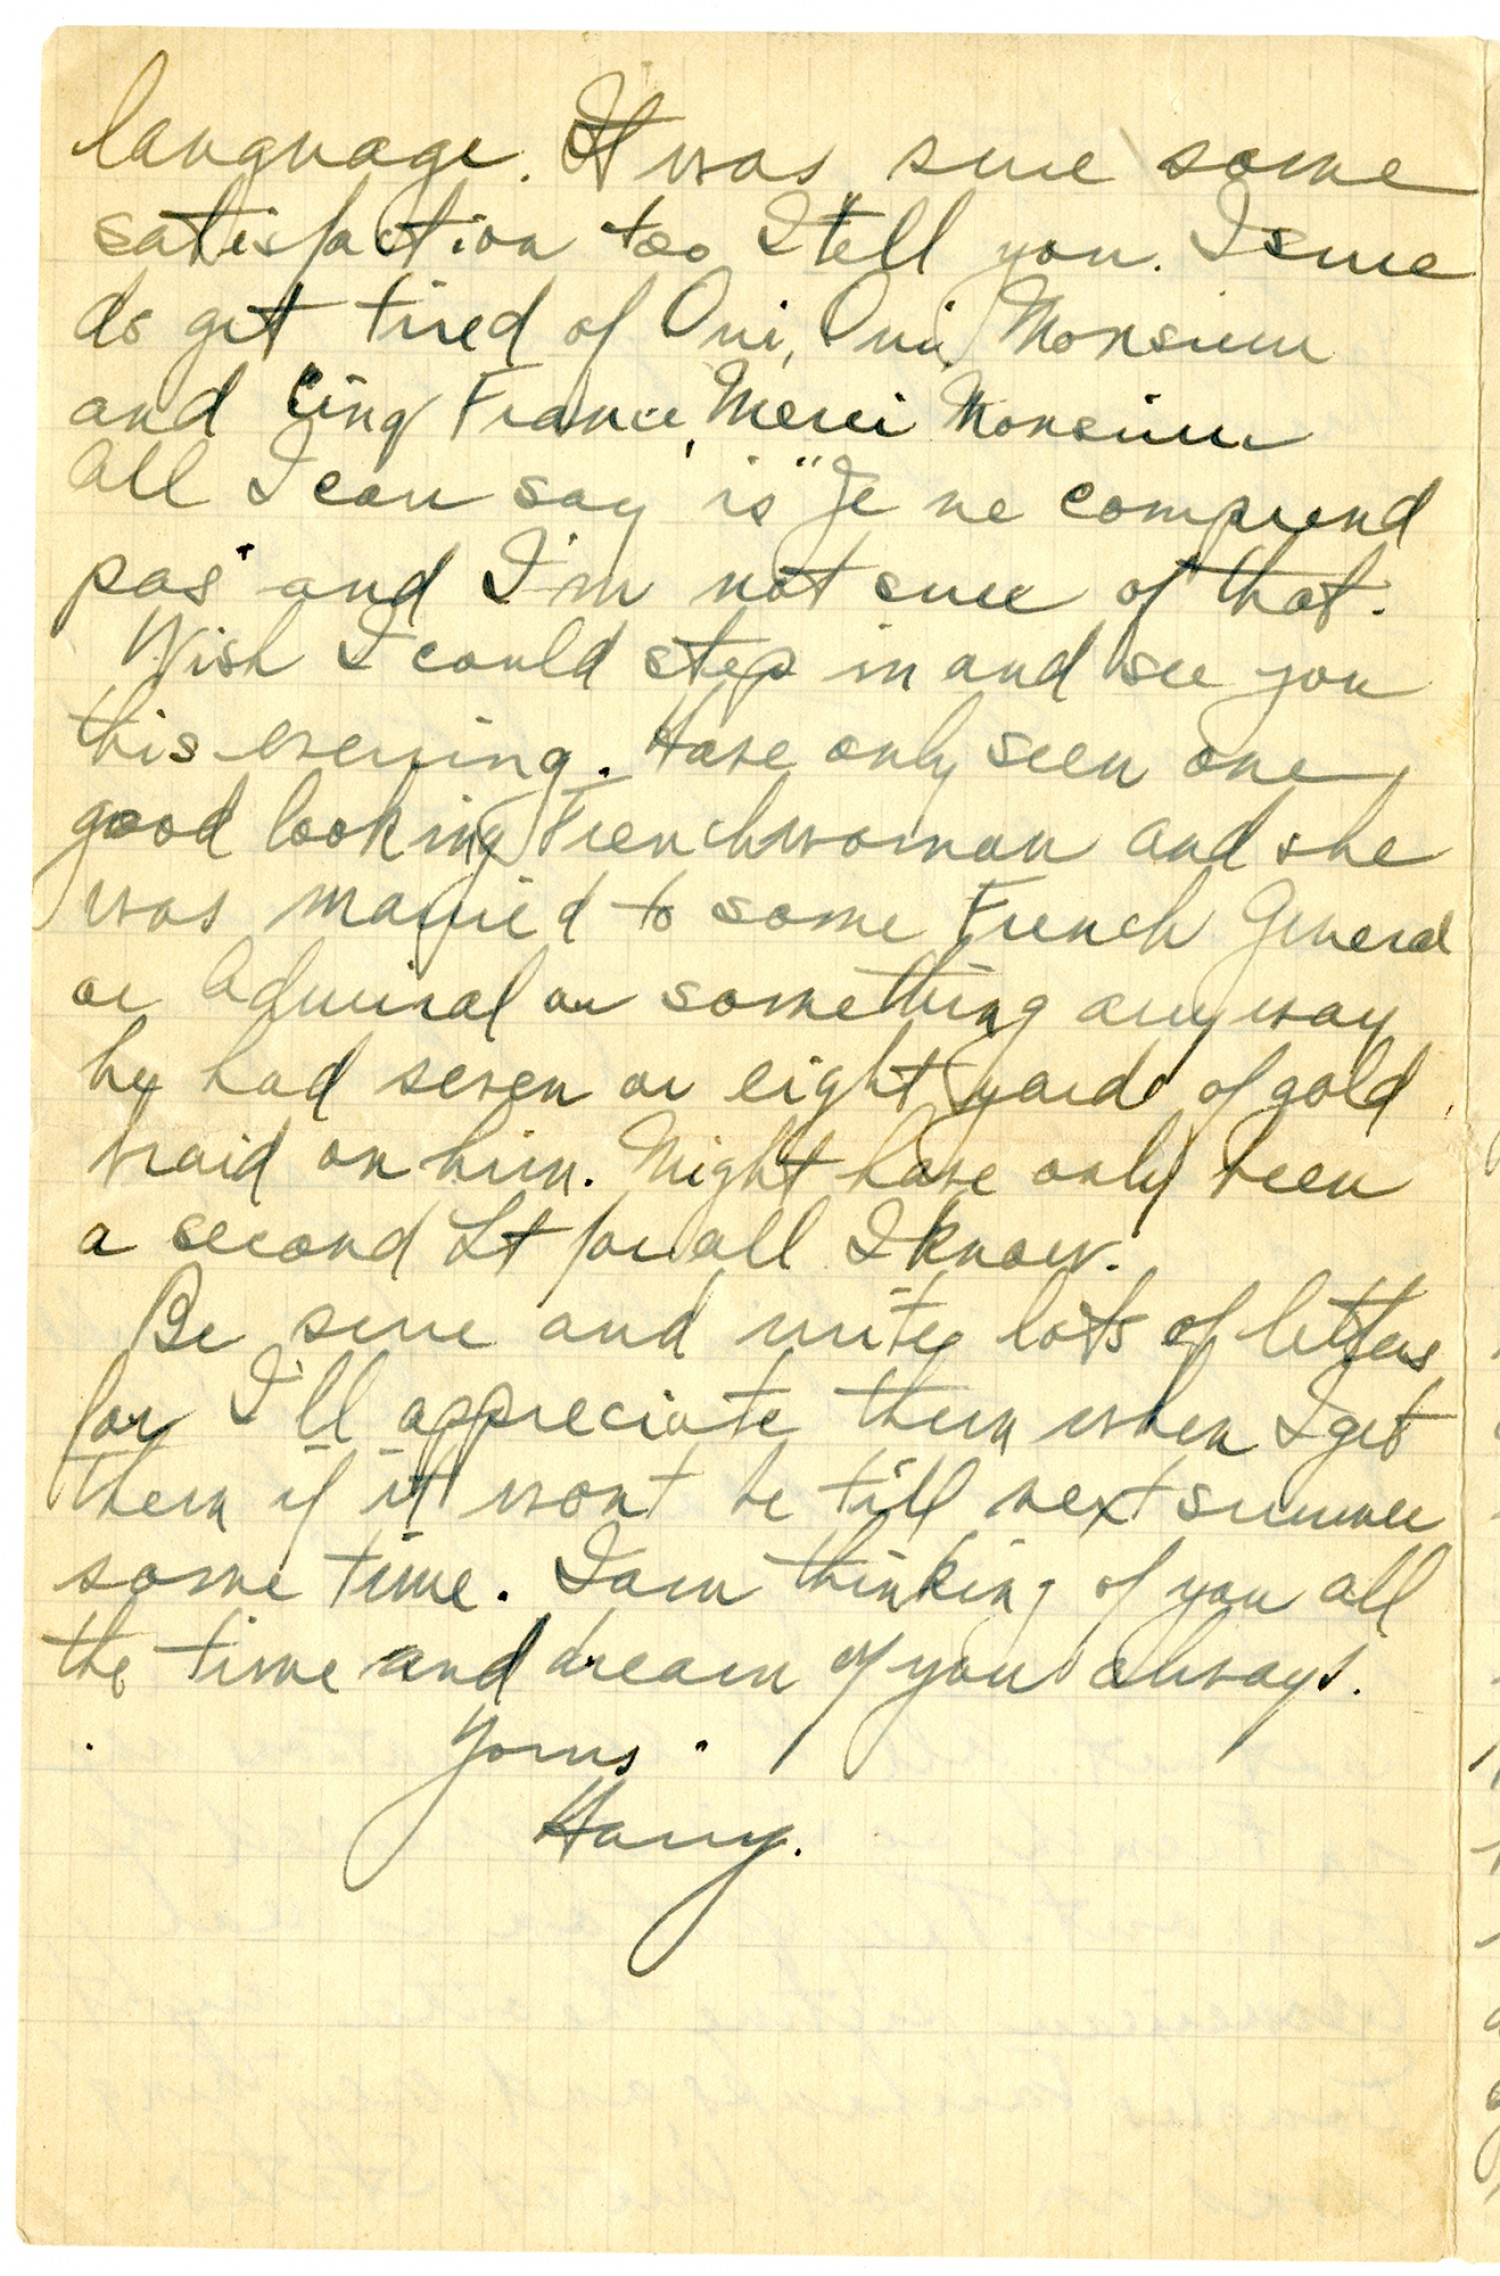 language. It was sure some
satisfaction too I tell you. I sure
do get tired of Oui, Oui, Monsieur
and Cinq Francs, Merci Monsieur
All I can say is "Je ne comprend
pas" and I'm not sure of that.
Wish I could step in and see you
this evening. Have only seen one
good looking Frenchwoman and she
was married to some French General
or Admiral or something anyway
he had seven or eight yards of gold
braid on him. Might have only been
a second Lt for all I know.
Be sure and write lots of letters
for I'll appreciate them when I get
them if it wont be till next summer
some time. I am thinking of you all
the time and dream of you always.
Yours.
Harry.